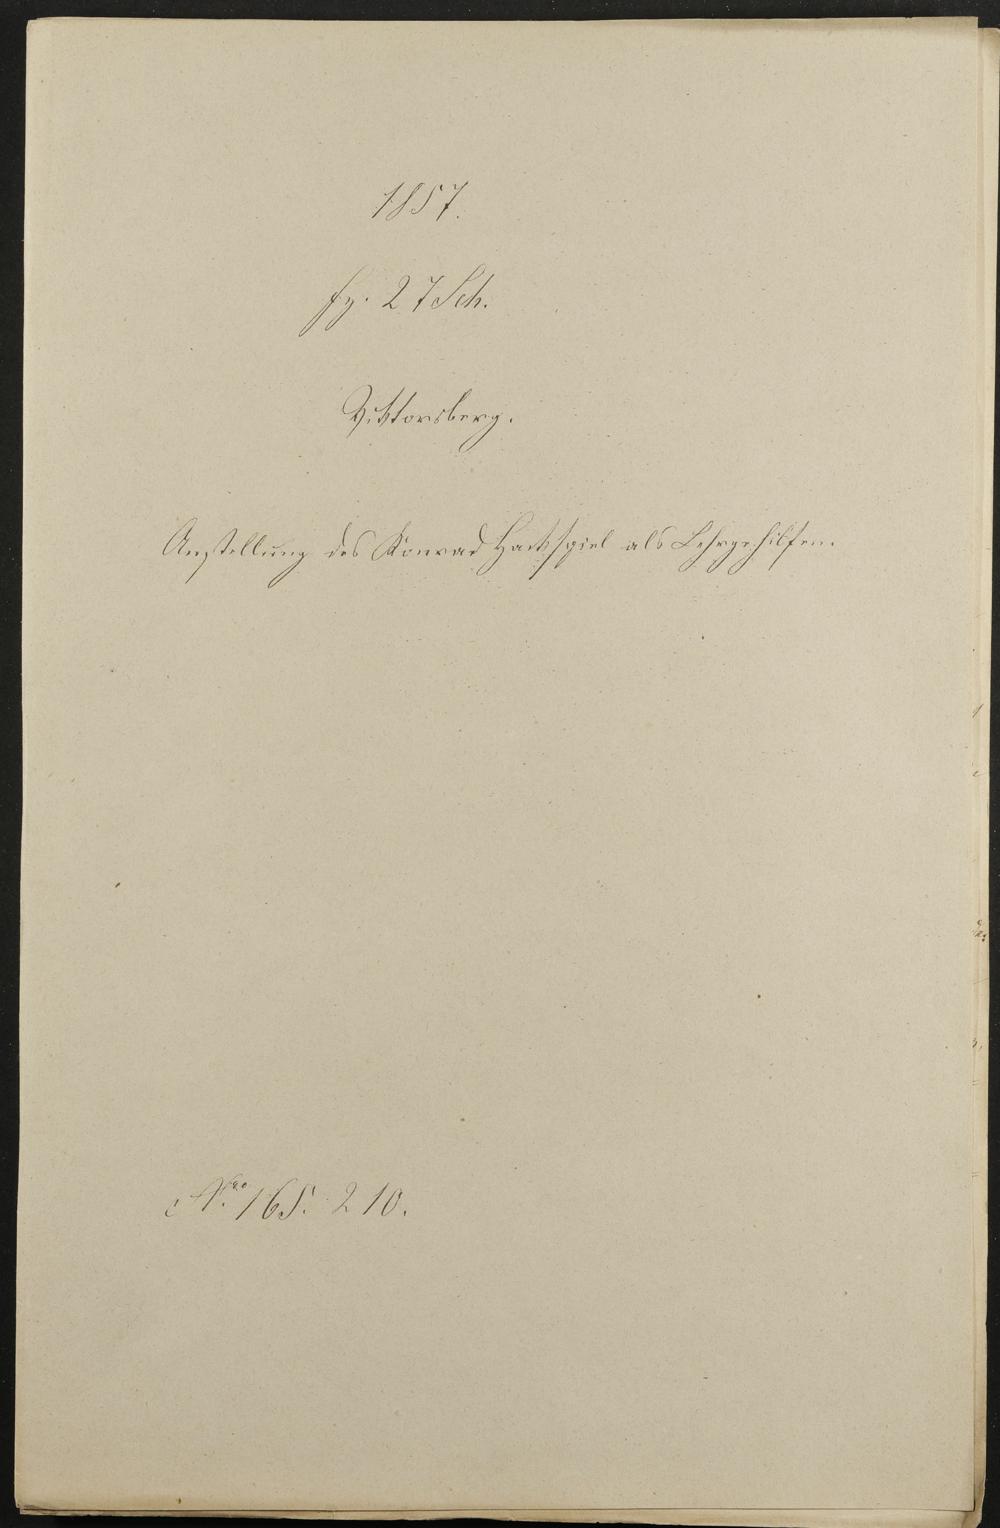 1857.
fz. 27 Sch.
Viktorsberg.
Anstellung des Konrad Hackspiel als Lehrgehilfen.
Nro. 165. 210.